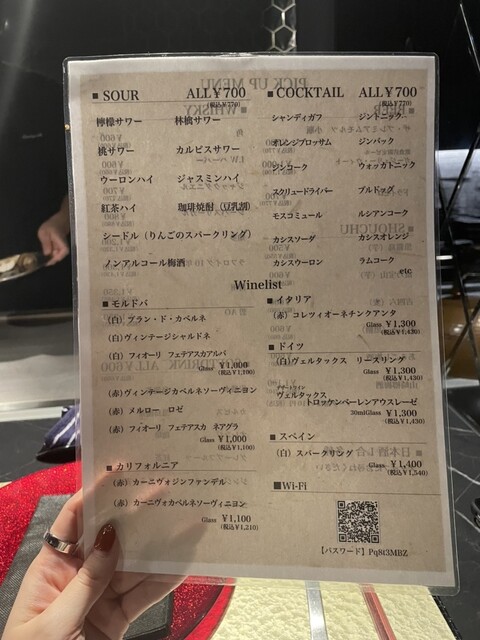 ■ SOUR ALL¥700
(税込¥770)
檸檬サワー 林檎サワー
桃サワー カルピスサワー
ウーロンハイ ジャスミンハイ
紅茶ハイ 珈琲焼酎（豆乳割）
シードル（りんごのスパークリング）
ノンアルコール梅酒
■ COCKTAIL ALL¥700
(税込¥770)
シャンディガフ ジントニック
オレンジブロッサム ジンバック
ウォッカトニック
スクリュードライバー ブルドッグ
モスコミュール ルシアンコーク
カシスソーダ カシスオレンジ
カシスウーロン ラムコーク
etc
Winelist
■モルドバ
（白）ブラン・ド・カベルネ
（白）ヴィンテージシャルドネ
（白）フィオーリ フェテアスカアルバ
Glass ¥1,000
(税込¥1,100)
（赤）ヴィンテージカベルネソーヴィニヨン
（赤）メルロー ロゼ
（赤）フィオーリ フェテアスカ ネアグラ
Glass ¥1,000
(税込¥1,100)
■カリフォルニア
（赤）カーニヴォジンファンデル
（赤）カーニヴォカベルネソーヴィニヨン
Glass ¥1,100
(税込¥1,210)
■イタリア
（赤）コレツィオーネチンクアンタ
Glass ¥1,300
(税込¥1,430)
■ドイツ
（白）ヴェルタックス リースリング
Glass ¥1,300
(税込¥1,430)
ヴェルタックス
トロッケンベーレンアウスレーゼ
30mlGlass ¥1,300
(税込¥1,430)
■スペイン
（白）スパークリング
Glass ¥1,400
(税込¥1,540)
■Wi-Fi
【パスワード】Pq8t3MBZ